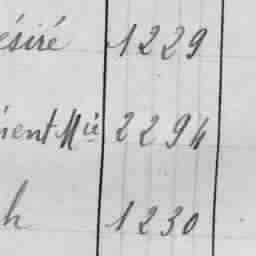 ésiré 1229
ment Mie 2294
h 1230